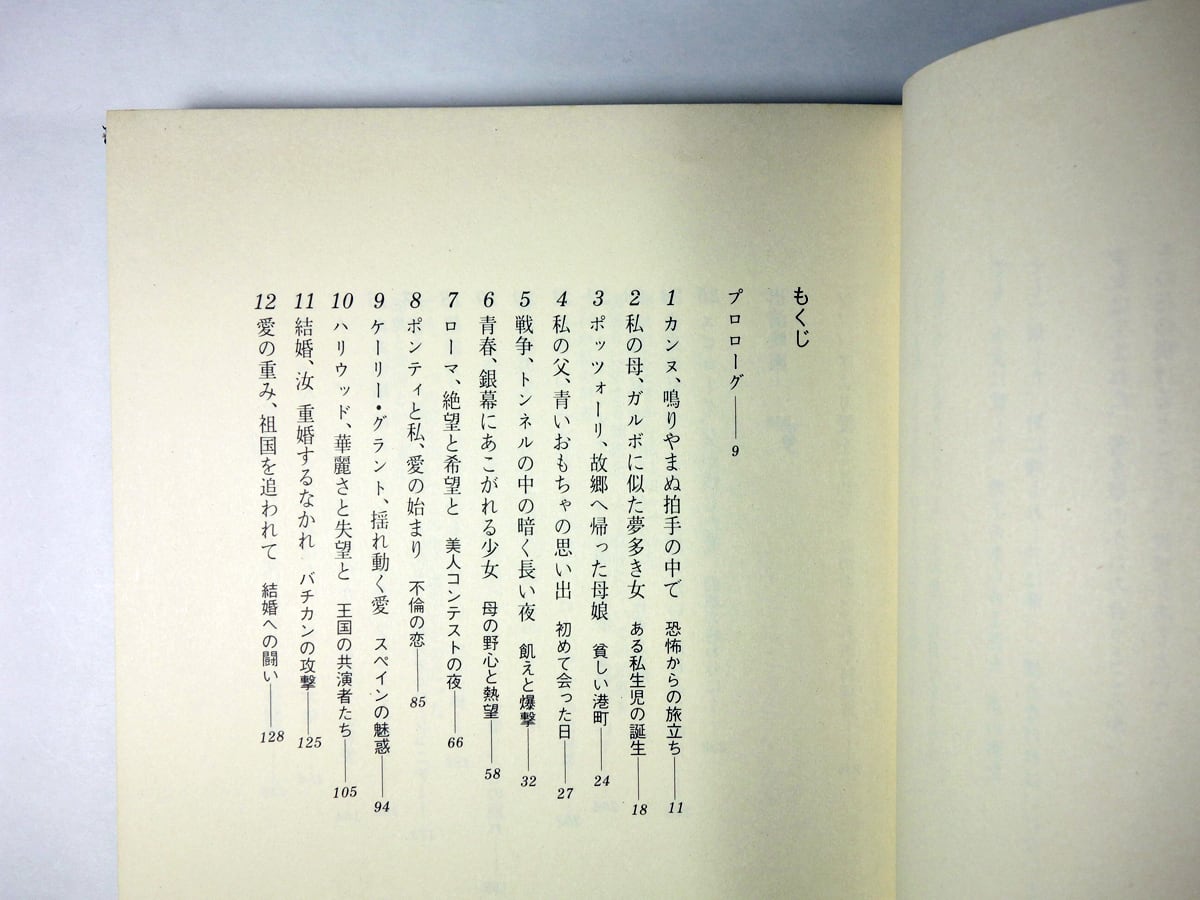 もくじ
プロローグ――9
1 カンヌ、鳴りやまぬ拍手の中で 恐怖からの旅立ち――11
2 私の母、ガルボに似た夢多き女 ある私生児の誕生――18
3 ポッツォーリ、故郷へ帰った母娘 貧しい港町――24
4 私の父、青いおもちゃの思い出 初めて会った日――27
5 戦争、トンネルの中の暗く長い夜 飢えと爆撃――32
6 青春、銀幕にあこがれる少女 母の野心と熱望――58
7 ローマ、絶望と希望と 美人コンテストの夜――66
8 ポンティと私、愛の始まり 不倫の恋――85
9 ケーリー・グラント、揺れ動く愛 スペインの魅惑――94
10 ハリウッド、華麗さと失望と 王国の共演者たち――105
11 結婚、汝 重婚するなかれ バチカンの攻撃――125
12 愛の重み、祖国を追われて 結婚への闘い――128